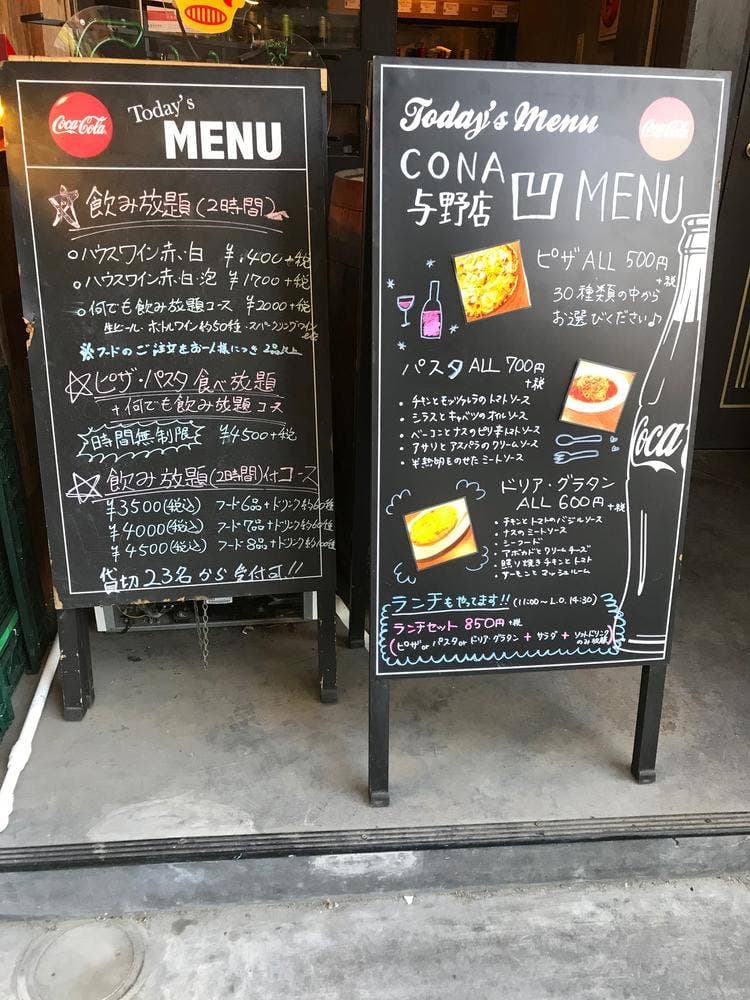 Coca-Cola
Today's
MENU
飲み放題(2時間)
ハウスワイン赤・白 ¥1,400+税
ハウスワイン赤・白・泡 ¥1700+税
何でも飲み放題コース ¥2000+税
生ビール・ボトルワイン約50種・スパークリングワイン
※フードのご注文をお一人様につき2品以上
ピザ・パスタ食べ放題
+何でも飲み放題コース
時間無制限 ¥4500+税
飲み放題(2時間)付コース
¥3500(税込) フード6品+ドリンク約60種
¥4000(税込) フード7品+ドリンク約60種
¥4500(税込) フード8品+ドリンク約100種
貸切23名から受付可!!
Today's Menu
Coca-Cola
CONA
与野店
凹 MENU
ピザ ALL 500円
+税
30種類の中から
お選びください♪
パスタ ALL 700円
+税
・チキンとモッツァレラのトマトソース
・シラスとキャベツのオイルソース
・ベーコンとナスのピリ辛トマトソース
・アサリとアスパラのクリームソース
・半熟卵のせたミートソース
Coca
ドリア・グラタン
ALL 600円+税
・チキンとトマトのバジルソース
・ナスのミートソース
・シーフード
・アボカドとクリームチーズ
・照り焼きチキンとトマト
・サーモンとマッシュルーム
ランチもやってます!! (11:00~L.O.14:30)
ランチセット 850円+税
(ピザorパスタorドリア・グラタン + サラダ + ソフトドリンク
のみ放題)